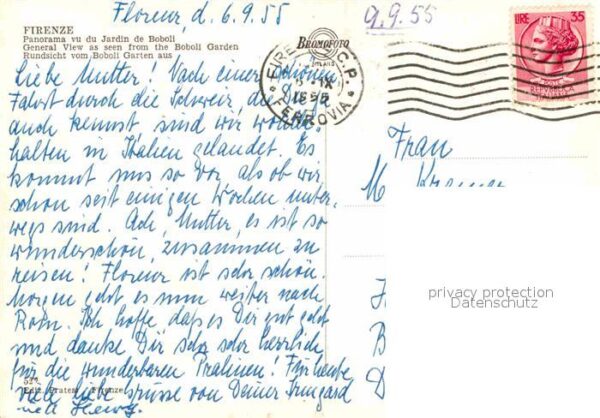 Florenz, d. 6.9.55
9.9.55
FIRENZE
Panorama vu du Jardin de Boboli
General View as seen from the Boboli Garden
Rundsicht vom Boboli Garten aus
BROMOFOTO
MILANO
LIRE 35
FERROVIA
Liebe Mutter! Nach einer schönen
Fahrt durch die Schweiz, die Du
auch kennst, sind wir wohlbe-
halten in Italien gelandet. Es
kommt uns so vor, als ob wir
schon seit einigen Wochen unter-
wegs sind. Ach, Mutter, es ist so
wunderschön, zusammen zu
reisen! Florenz ist sehr schön.
Morgen geht es nun weiter nach
Rom. Ich hoffe, daß es Dir gut geht
und danke Dir sehr sehr herzlich
für die wunderbaren Pralinen! Für heute
viele liebe Grüsse von Deiner Irmgard
und
Frau
privacy protection
Datenschutz